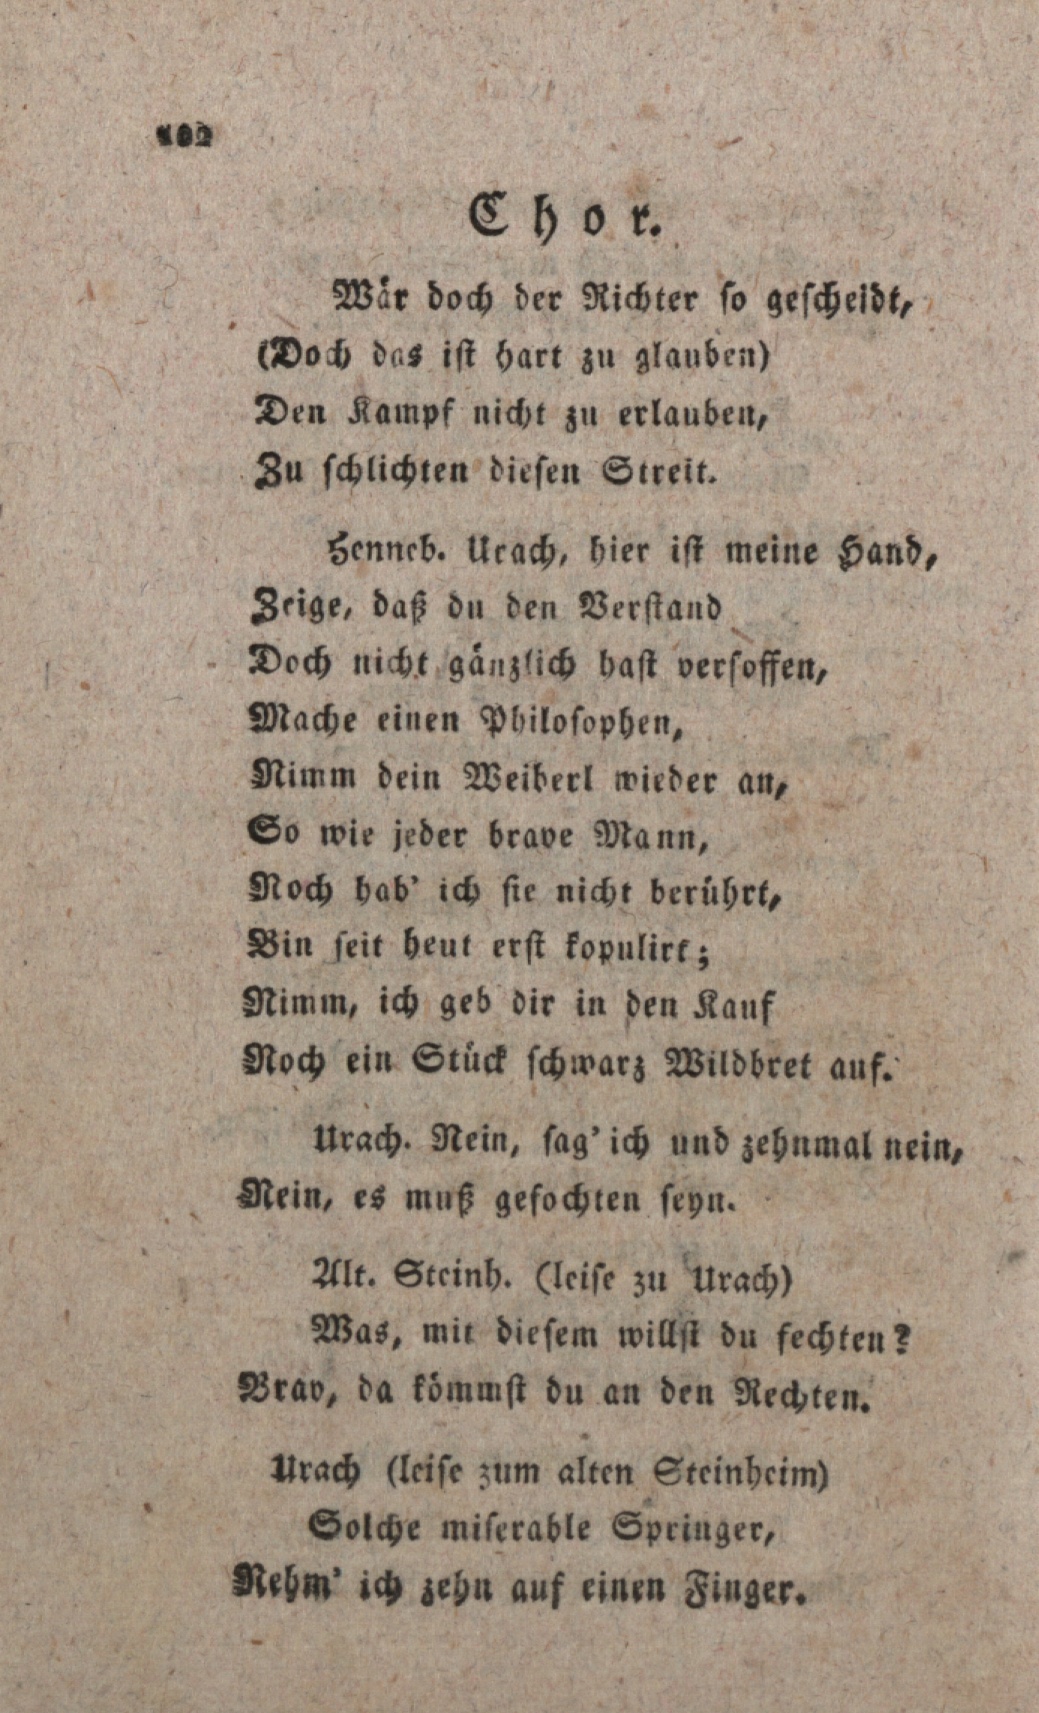 102
Chor.
Wär doch der Richter so gescheidt,
(Doch das ist hart zu glauben)
Den Kampf nicht zu erlauben,
Zu schlichten diesen Streit.
Henneb. Urach, hier ist meine Hand,
Zeige, daß du den Verstand
Doch nicht gänzlich hast versoffen,
Mache einen Philosophen,
Nimm dein Weiberl wieder an,
So wie jeder brave Mann,
Noch hab' ich sie nicht berührt,
Bin seit heut erst kopulirt;
Nimm, ich geb dir in den Kauf
Noch ein Stück schwarz Wildbret auf.
Urach. Nein, sag' ich und zehnmal nein,
Nein, es muß gefochten seyn.
Alt. Steinh. (leise zu Urach)
Was, mit diesem willst du fechten?
Brav, da kömmst du an den Rechten.
Urach (leise zum alten Steinheim)
Solche miserable Springer,
Nehm' ich zehn auf einen Finger.